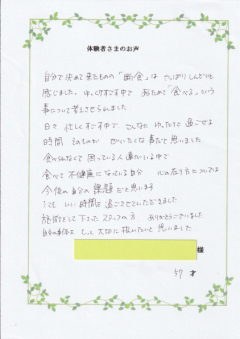 体験者さまのお声
自分で決めて来たものの「断食」は やっぱりしんどいと
感じました。ゆっくりすごす中で あらためて「食べる」という
事について考えさせられました
日々 忙しくすごす中で こんなに ゆったりと 過ごせる
時間 そのものが ぜいたくな事だと思いました
食べれなくて 困っている人達がいる中で
食べて 不健康になっている自分 心の在り方については
今後の自分の課題だと思います
とても いい時間を 過ごさせていただきました
施術をして下さった スタッフの方 ありがとうございました
自分の身体を もっと 大切に 扱いたいと 思いました
様
57 才